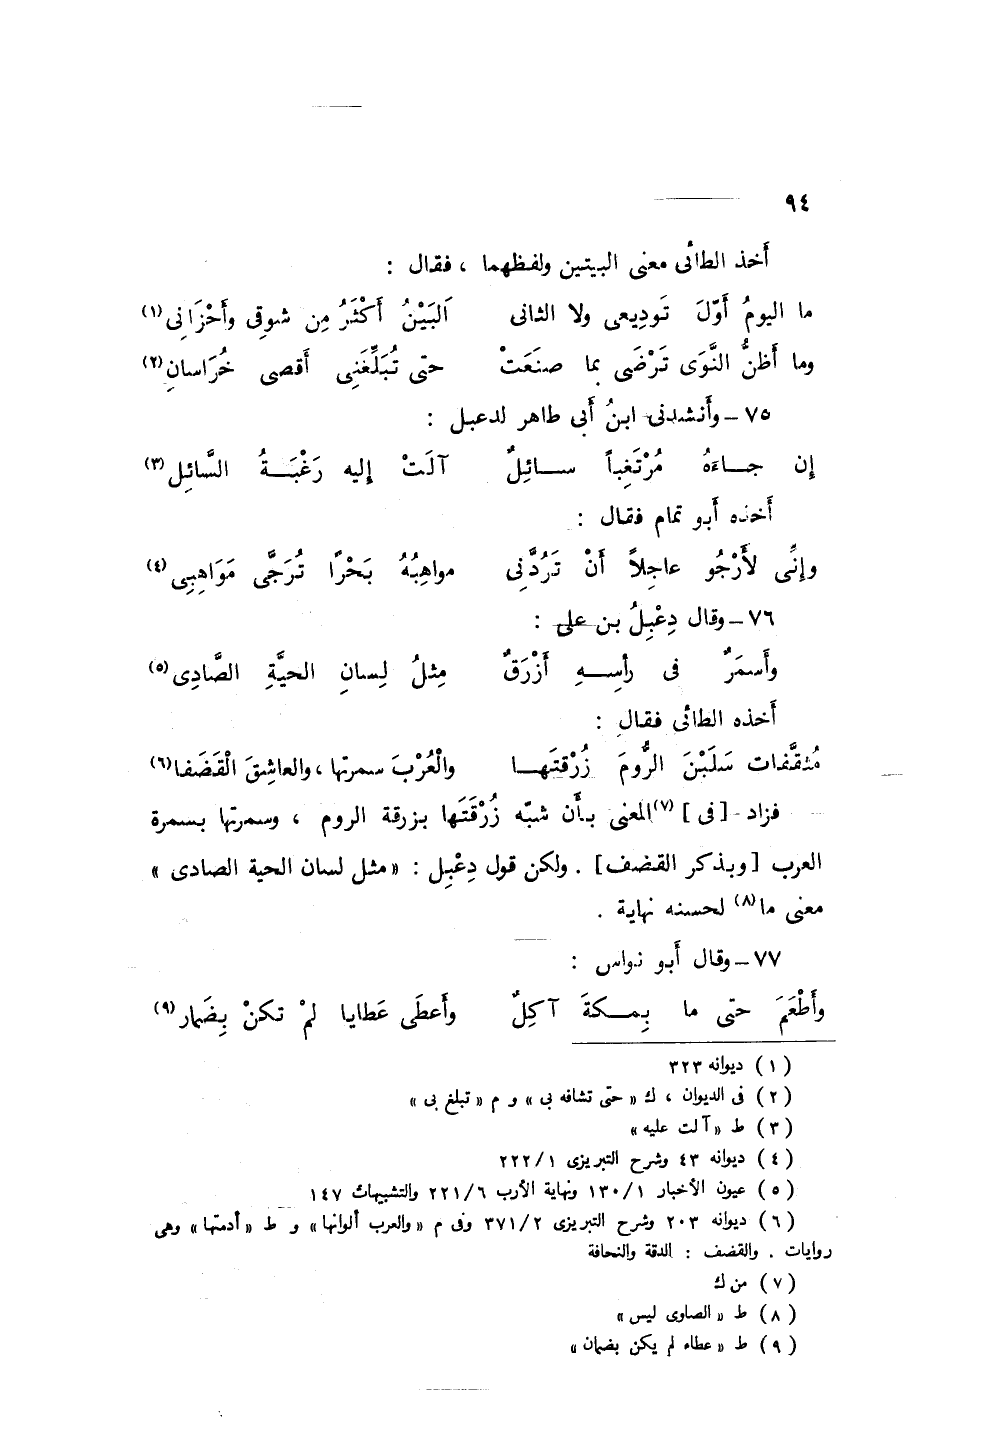 ٩٤
أخذ الطائى معنى البيتين ولفظهما ، فقال :
ما اليومُ أَوّلَ تَودِيعى ولا الثانى اَلبَيْنُ أَكْثَرُ مِن شوقِى وأَحْزَانِى (١)
وما أَظنُّ النَّوَى تَرْضَى بما صنَعَتْ حتى تُبَلِّغَنِى أَقصى خُرَاسانِ (٢)
٧٥ – وأَنشدنى ابنُ أَبى طاهر لدعبل :
إِن جـاءَهُ مُرْتَغِباً سـائِلٌ آلَتْ إِليه رَغْبَـةُ السَّائِلِ (٣)
أَخذه أَبو تمام فقال :
وإِنِّى لأَرْجُو عاجِلاً أَنْ تَرُدَّنِى مواهِبُهُ بَحْرًا تُرَجَّى مَوَاهِبِى (٤)
٧٦ – وقال دِعْبِلُ بن على :
وأَسمَرٌ فى رأسِـهِ أَزْرَقٌ مِثلُ لِسانِ الحيَّةِ الصَّادِى (٥)
أَخذه الطائى فقال :
مُثقَّفات سَلَبْنَ الرُّومَ زُرْقتَهـا والْعُرْبَ سمرتها ، والعاشِقَ الْقَضَفا (٦)
فزاد [ فى ] (٧) المعنى بأَن شبّه زُرْقَتَها بزرقة الروم ، وسمرتها بسمرة
العرب [ وبذكر القضف ] . ولكن قول دِعْبِل : « مثل لسان الحية الصادى »
معنى ما (٨) لحسنه نهاية .
٧٧ – وقال أَبو نواس :
وأَطْعَمَ حتى ما بِمـكةَ آكِلٌ وأَعطَى عَطايا لمْ تكنْ بِضَمار (٩)
( ١ ) ديوانه ٣٢٣
( ٢ ) فى الديوان ، ك « حتى تشافه بى » و م « تبلغ بى »
( ٣ ) ط « آلت عليه »
( ٤ ) ديوانه ٤٣ وشرح التبريزى ١ / ٢٢٢
( ٥ ) عيون الأخبار ١ / ١٣٠ ونهاية الأرب ٦ / ٢٢١ والتشبيهات ١٤٧
( ٦ ) ديوانه ٢٠٣ وشرح التبريزى ٢ / ٣٧١ وفى م « والعرب ألوانها » و ط « أدمتها » وهى
روايات . والقضف : الدقة والنحافة
( ٧ ) من ك
( ٨ ) ط « الصاوى ليس »
( ٩ ) ط « عطاء لم يكن بضمان »